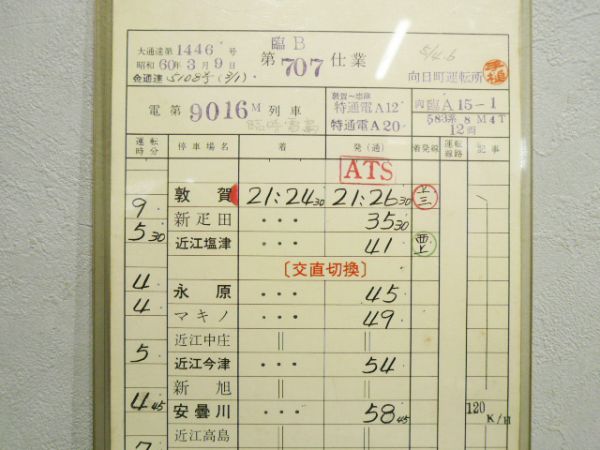 大通達第1446号
昭和60年3月9日
金通達5108号(3/1)
臨B
第707仕業
5/4.6
向日町運転所
電第9016M列車
臨時雷鳥
敦賀~
特通電A12
特通電A20
内臨A15-1
583系8M4T
12両
運転時分 停車場名 着 発(通) 着発線 運転線路 記事
ATS
敦賀 21:24 30 21:26 30 上三
9 新疋田 ・・・ 35 30
5 30 近江塩津 ・・・ 41 西上
〔交直切換〕
4 永原 ・・・ 45
4 マキノ ・・・ 49
近江中庄 || ||
5 近江今津 ・・・ 54
新旭 || ||
4 45 安曇川 ・・・ 58 45 120 K/H
近江高島 || ||